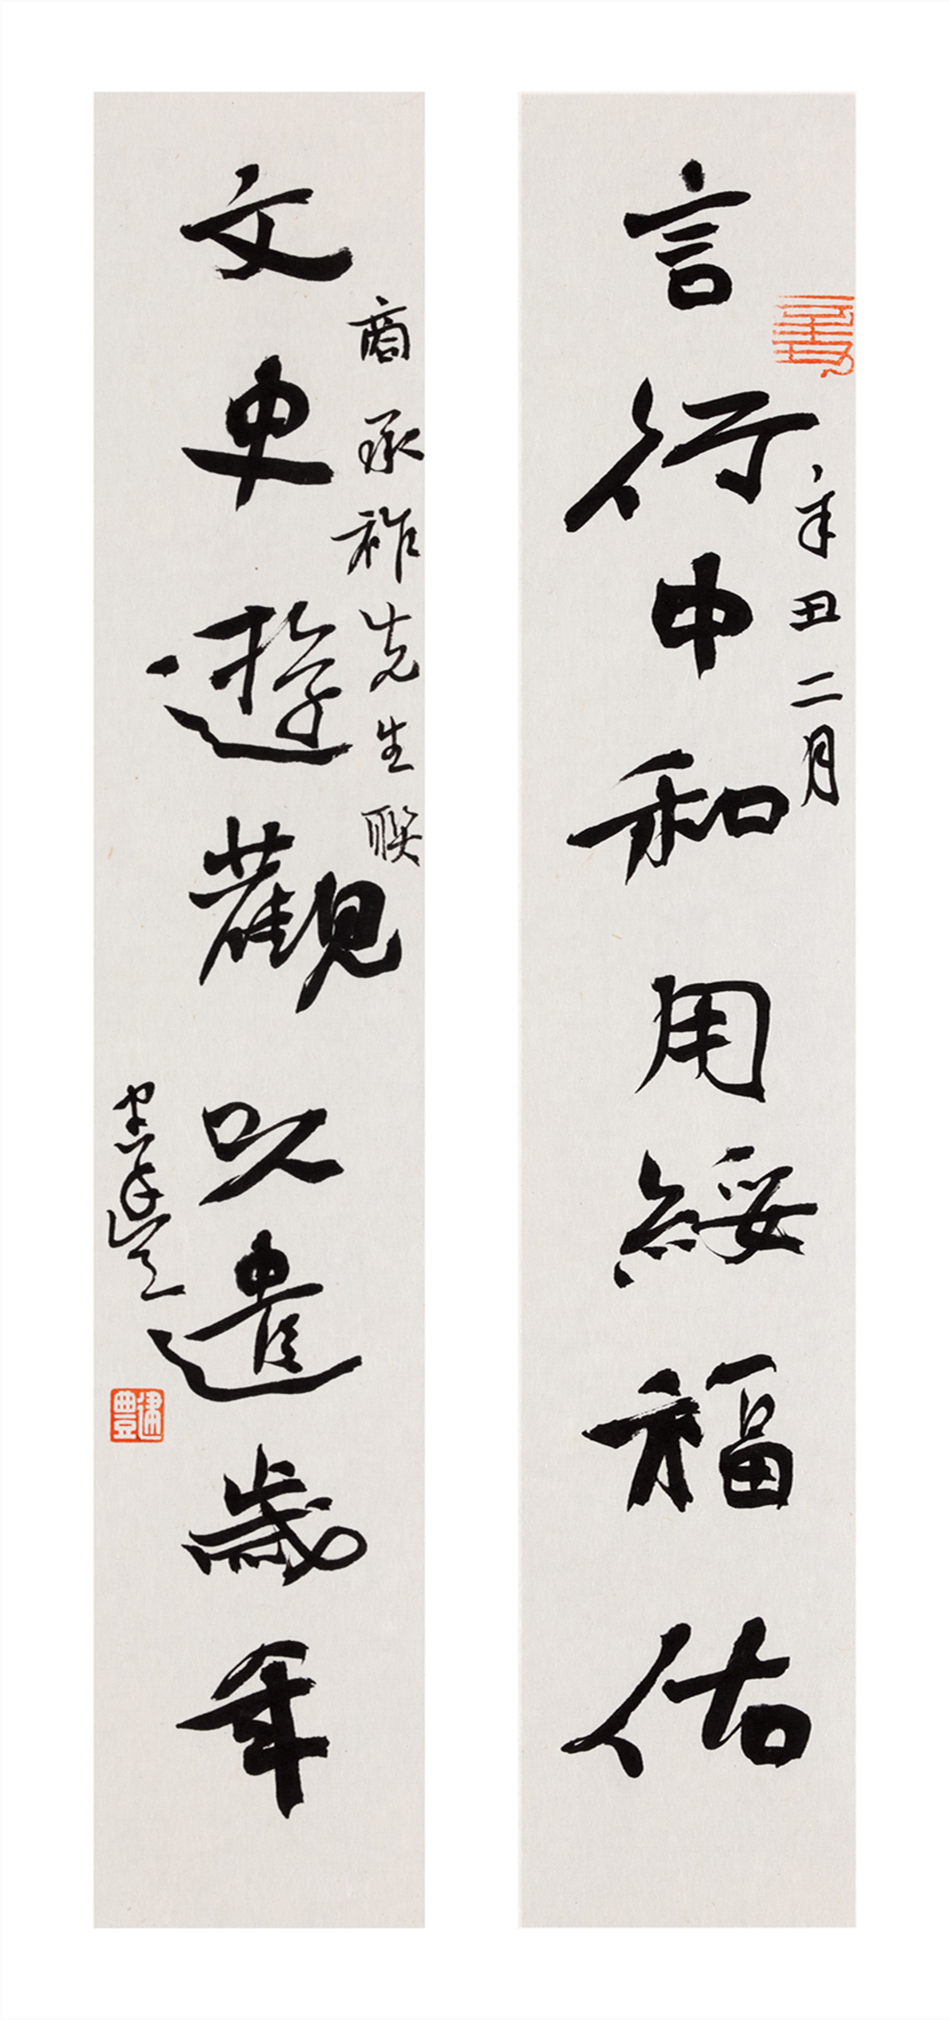 言行中和用綏福佑
辛丑二月
文史遊觀以遣歲年
商承祚先生聯
建豐